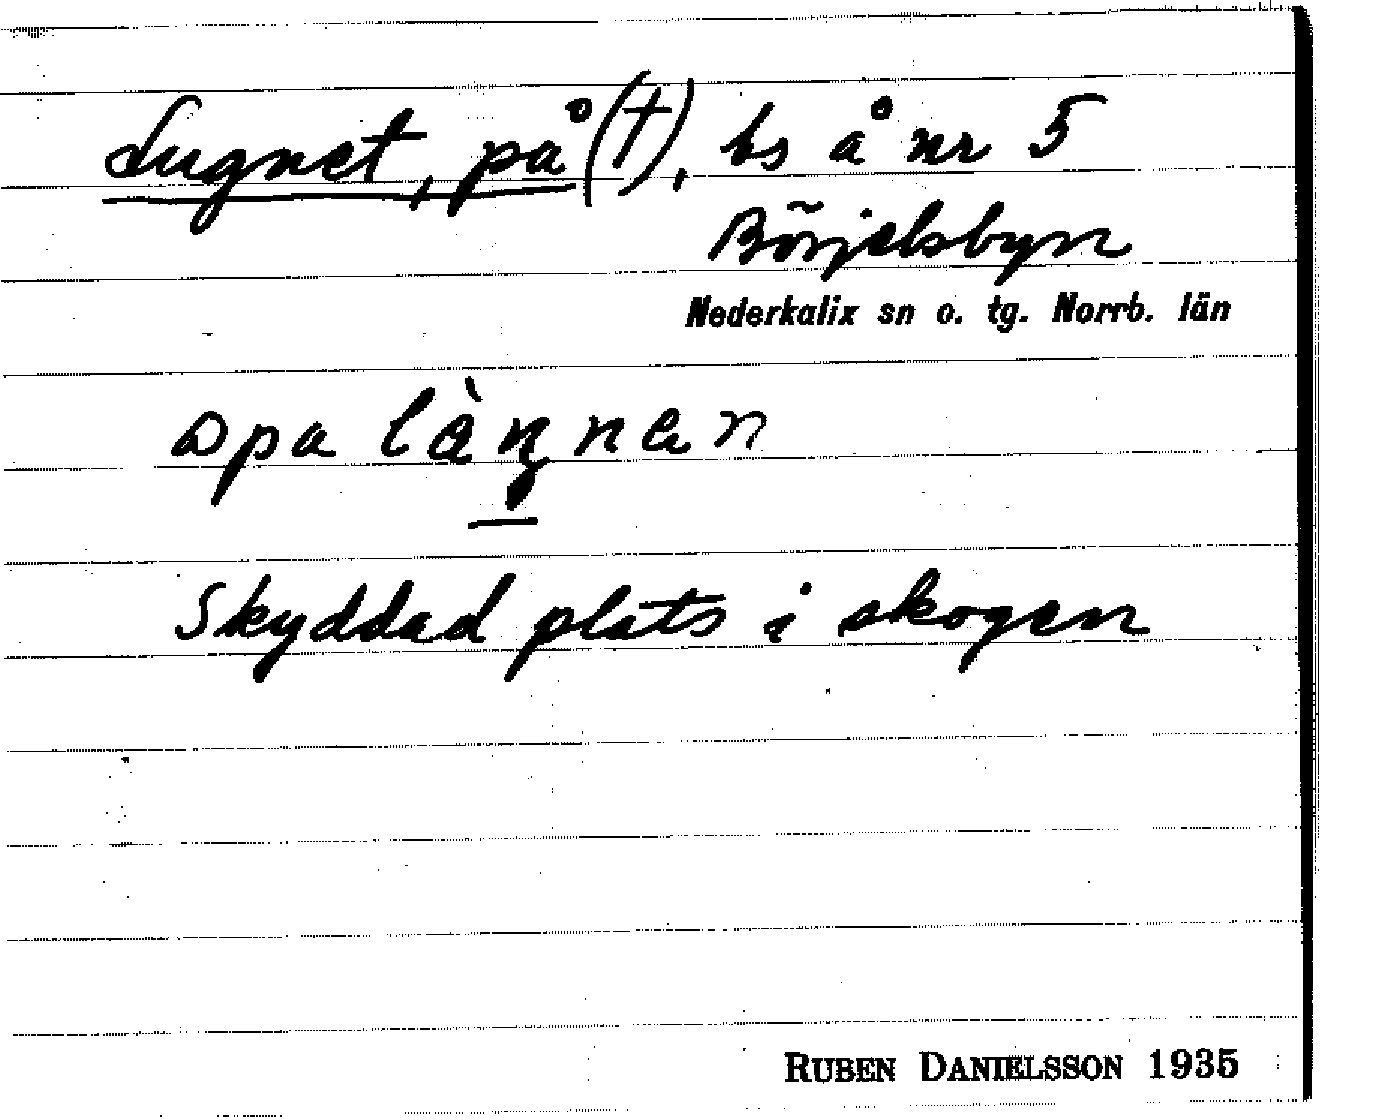 Lugnet, på (†), bs å nr 5
Börjelsbyn
Nederkalix sn o. tg. Norrb. län
Skyddad plats i skogen
RUBEN DANIELSSON 1935